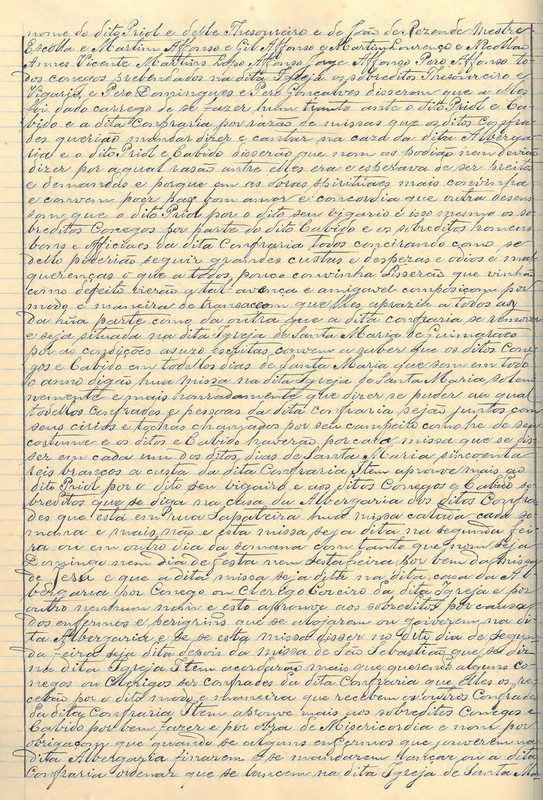 nome do dito Priol e delle Thesoureiro e de João de Rezende Mestre
Escolla e Martim Affonso e Gil Affonso e Martim Lourenço e
Annes Vicente Martins Affonso Jorge Affonso Pero Affonso to-
dos conegos prebendados na dita Igreja e os sobreditos Thesoureiro e
Vigario, e Pero Domingues e Pero Gonçalves disseram que a elles
foi dado carrego de se fazer hum ante o dito Priol e Ca-
bido e a dita Confraria por razão de missas que os ditos Confra-
des querião mandar dizer e cantar na caza da dita Alberga-
ria e o dito Priol e Cabido disserão que nom as podião nem devião
dizer por a qual rasão antre elles era e esperava de ser preitos
e demandas e porque em as obras spirituaes mais convinha
e convem poer paz com amor e concordia que outra desen-
som que o dito Priol por o dito seu vigario e isso mesmo os so-
breditos Conegos por parte do dito Cabido e os sobreditos homens
bons e Officiaes da dita Confraria todos concirando como se
desto poderião seguir grandes custas e despezas e odios e mal
querenças o que a todos pouco convinha diserão que vinhão
como defeito vierão a tal avença e amigavel composiçom por
modo e maneira de transacom que elles aprazia a todos as
da hũa parte como da outra que a dita confraria se
e seja situada na dita Igreja de Santa Maria de Guimarães
por as condições a suzo escritas convem a saber que os ditos Cone-
gos e Cabido em todollos dias de Santa Maria que som em todo
o anno digão hua missa na dita Igreja de Santa Maria solem
nemente e mais honradamente que dizer se puder na qual
todollos Confrades e pessoas da dita confraria sejão juntos com
seus cirios e tochas chamados por seu campeiro como he de seu
costume e os ditos e Cabido haverão por cada missa que se dis-
ser em cada um dos ditos dias de Santa Maria sincoenta
reis brancos a custa da dita Confraria Item aprouve mais ao
dito Priol por o dito seu vigairo e aos ditos Conegos e Cabido so-
breditos que se diga na casa da Albergaria dos ditos Confra-
des que está em rua Sapateira huma missa calada cada so-
mana e mais não e esta missa seja dita na segunda fei-
ra ou em outro dia da somana com tanto que nom seja
Domingo nem dia de festa nem Sesta feira por bem da missa
de Jesu e que a dita missa seja dita na dita casa da Al-
bergaria por Conego ou Clerigo Coreiro da dita Igreja e por
outro nenhum nam e esto aprouve aos sobreditos por causa
dos enfermos e peregrins que se alojarem ou jouverem na di-
ta Albergaria e se se esta missa disser no dito dia de segun-
da feira seja dita depois da missa de São Sebastião que se diz
na dita Igreja Item acordarão mais que querendo alguns co-
negos ou Clerigos ser confrades da dita Confraria que elles os re-
cebão por o dito modo e maneira que recebem os outros Confrades
da dita Confraria Item aprouve mais aos sobreditos Conegos e
Cabido por bem fazer e por obra de Misericordia e nom por
obrigaçom que quando se alguns enfermos que jouverem na
dita Albergaria finarem e se mandarem lançar ou a dita
Confraria ordenar que se lancem na dita Igreja de Santa Ma-